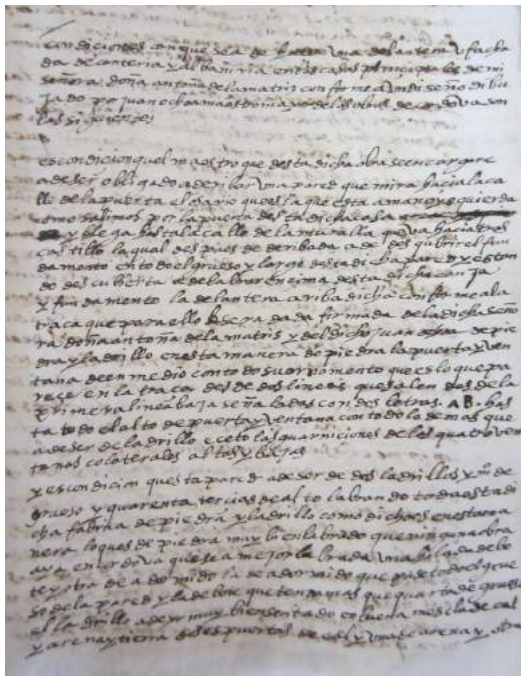 condiciones con que se a de hazer una delantera u facha
da de canteria y albañiria en las casas principales de mi
señora doña antoña de la matris conforme a un diseño dibu
jado por juan ochoa maestro mayor de las obras de cordova son
las siguientes
es condicion quel maestro que desta dicha obra se encargare
a de ser obligado a deribar una pared que mira hacia la ca
lle de la puerta el osario ques la que esta a mano ysquierda
como salimos por la puerta desta dicha casa
y llega hasta la calle de la muralla que va hacia tras
castillo la qual despues de deribada a de desqubrir el fun
damento en todo el grueso y largo desta dicha pared y estan
do descubierta a de labrar encima desta dicha çanja
y fundamento la delantera ariba dicha conforme a la
traça que para ello le sera dada firmada de la dicha seño
ra doña antoña de la matris y del dicho juan ochoa de pie
dra y ladrillo en esta manera de piedra la puerta y ven
tana de en medio con todo su ornamento que es lo que pa
reçe en la traça desde dos lineas que salen desde la
primera linea baja señaladas con dos letras. AB. has
ta todo el alto de puerta y ventana con todo lo demas que
a de ser de ladrillo eceto las guarniciones de las quatro ven
tanas colaterales altas y bajas
y es condicion questa pared a de ser de dos ladrillos y mº de
grueso y quarenta tercias de alto labrando toda esta di
cha fabrica de piedra y ladrillo como dicho es en esta ma
nera lo ques de piedra muy bien labrado que ninguna obra
aya en cordova que sea mejor labrada una hilada de be
te y otra de adormido la de adormido que pase todo el grue
so de la pared y la de bete que tenga mas que quarta de grueso
el ladrillo a de yr muy bien sentado en buena mescla de cal
y arena y tierra dos espuertas de cal y una de arena y otra